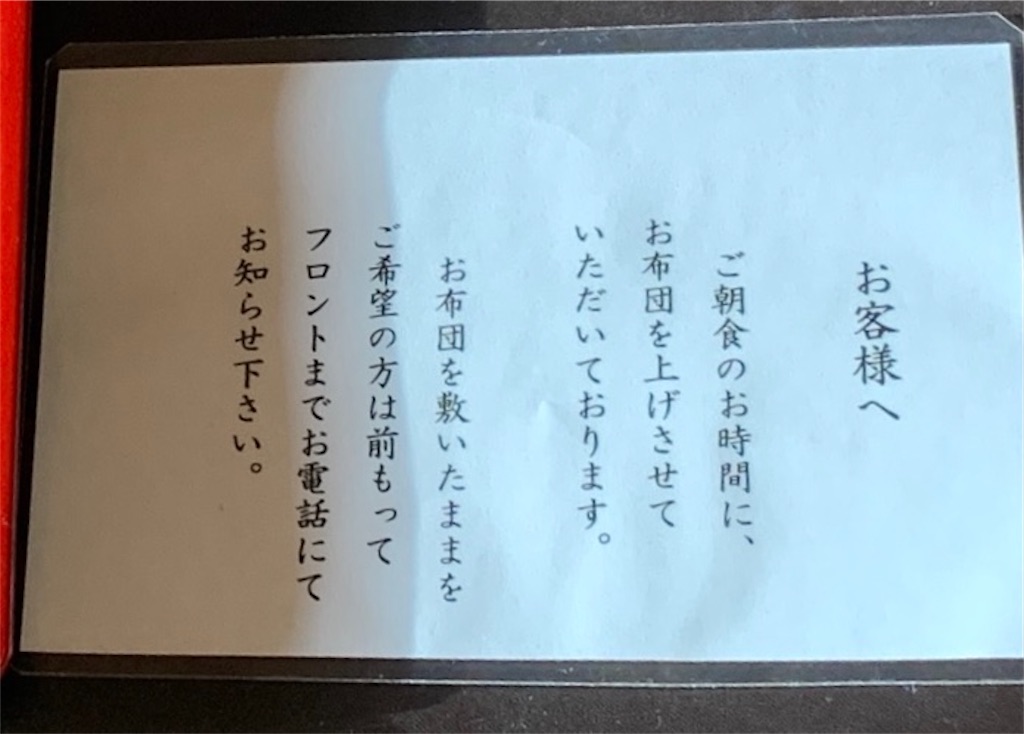 お客様へ
ご朝食のお時間に、
お布団を上げさせて
いただいております。
お布団を敷いたままを
ご希望の方は前もって
フロントまでお電話にて
お知らせ下さい。